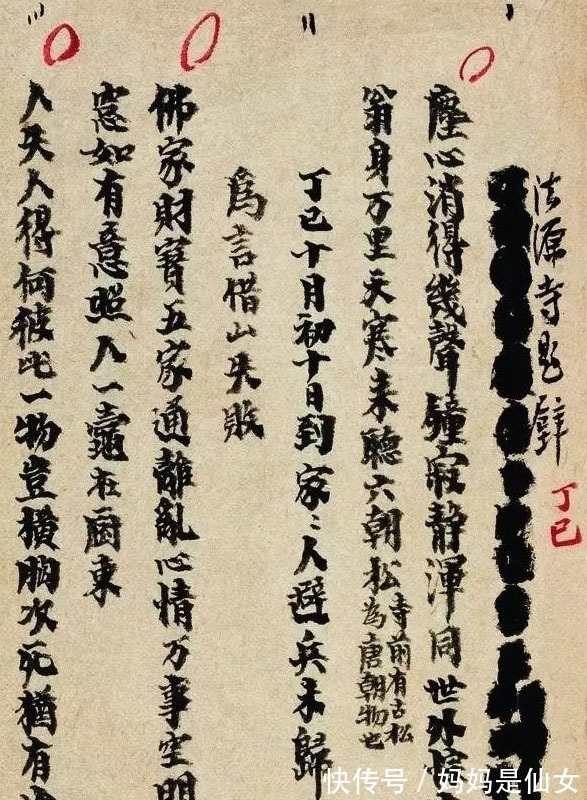 法源寺題壁
丁巳
塵心消得幾聲鐘寂靜渾同世外
翁身万里天寒来聽六朝松寺前有古松為唐朝物也
丁巳十月初十日到家〻人避兵未歸
為言借山失敗
佛家財寶五家通離亂心情万事空明
窓如有意照人一龕在厨東
人失人得何彼此一物豈横胸次死猶有
快传号/妈妈是仙女